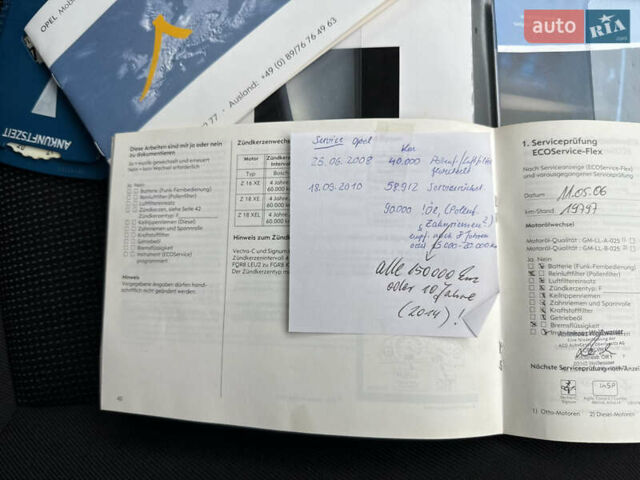 OPEL Mobi
77 · Ausland: +49 (0) 89/76 76 49 63
auto RIA
.com
ANKUNFTSZEIT
Diese Arbeiten sind mit ja oder nein
zu dokumentieren
Ja = wurde gewechselt und erneuert
Nein = kein Wechsel erforderlich
Ja Nein
Batterie (Funk-Fernbedienung)
Reinluftfilter (Pollenfilter)
Luftfiltereinsatz
Zündkerzen, siehe Seite 42
Zündkerzentyp: F
Keilrippenriemen (Diesel)
Zahnriemen und Spannrolle
Kraftstofffilter
Getriebeöl
Bremsflüssigkeit
Instrument (ECOService)
programmiert
Hinweis
Vorgegebene Angaben dürfen hand-
schriftlich nicht geändert werden.
Zündkerzenwechs
Motor Zündkerzen
Interval
Typ Bosch
Z 16 XE 4 Jahre
60.000 k
Z 18 XE 4 Jahre
60.000 k
Z 18 XEL 4 Jahre
60.000 k
Hinweis zum Zünd
Vectra-C und Signum
Zündkerzenintervall 4
FQR8 LEU2 zu FGR8 K
Der Zündkerzentyp m
Service Opel Km
25.06.2008 40.000
18.09.2010 58.912
90.000 Öl, (Pollenf.
Zahnriemen ?)
empf. nach 8 Jahren
oder
alle 150 000 km
oder 10 Jahre
(2014) !
1. Serviceprüfung
ECOService-Flex
Nach Serviceanzeige (ECOService-Flex)
und vorausgegangener Serviceprüfung
Datum 11.05.06
km-Stand 19797
Motorölwechsel
Motoröl-Qualität : GM-LL-A-025 1)
Motoröl-Qualität : GM-LL-B-025 2)
Ja Nein
Batterie (Funk-Fernbedienung)
Reinluftfilter (Pollenfilter)
Luftfiltereinsatz
Zündkerzentyp: F
Keilrippenriemen
Zahnriemen und Spannrolle
Kraftstofffilter
Getriebeöl
Bremsflüssigkeit
Autohaus Weißwasser
Nächste Serviceprüfung nach Anzei
InSP
1) Otto-Motoren 2) Diesel-Motoren